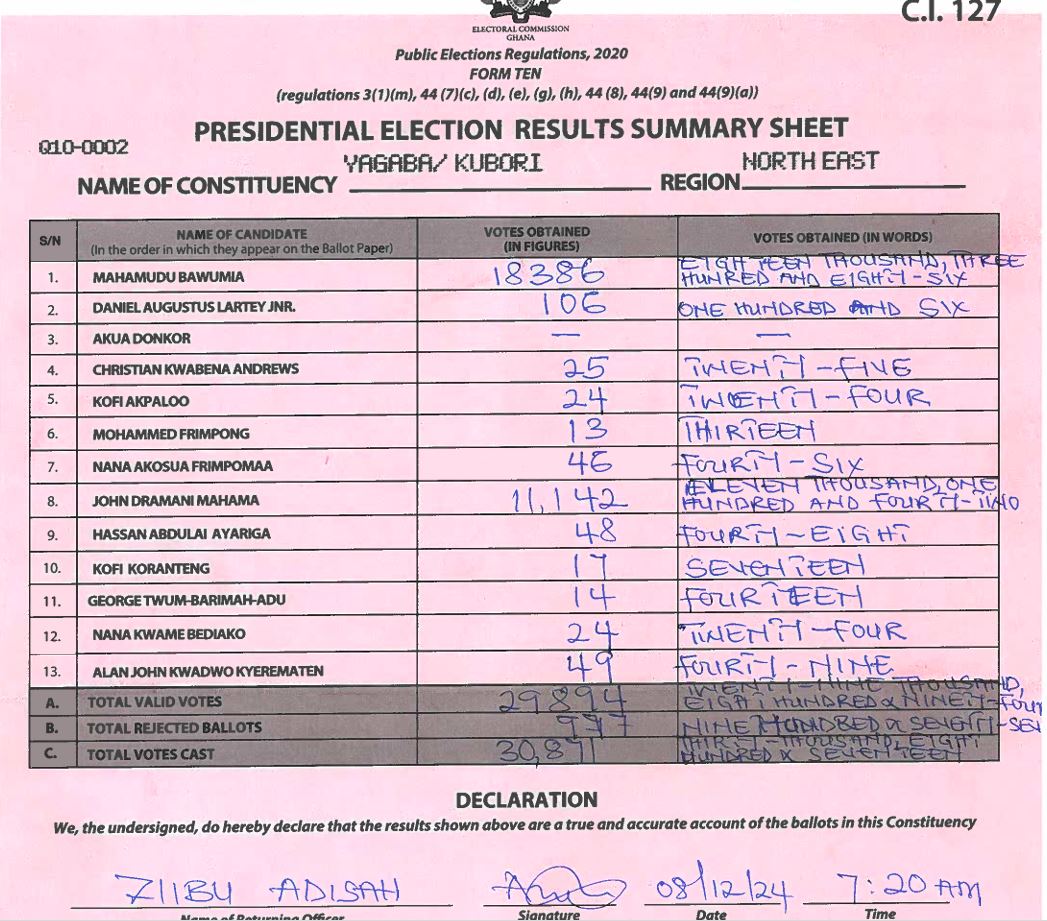 C.I. 127
ELECTORAL COMMISSION
GHANA
Public Elections Regulations, 2020
FORM TEN
(regulations 3(1)(m), 44 (7)(c), (d), (e), (g), (h), 44 (8), 44(9) and 44(9)(a))
PRESIDENTIAL ELECTION RESULTS SUMMARY SHEET
Q10-0002
NAME OF CONSTITUENCY YAGABA/ KUBORI REGION NORTH EAST
S/N NAME OF CANDIDATE (In the order in which they appear on the Ballot Paper) VOTES OBTAINED (IN FIGURES) VOTES OBTAINED (IN WORDS)
1. MAHAMUDU BAWUMIA 18386 EIGHTEEN THOUSAND, THREE HUNRED AND EIGHTY-SIX
2. DANIEL AUGUSTUS LARTEY JNR. 106 ONE HUNDRED AND SIX
3. AKUA DONKOR — —
4. CHRISTIAN KWABENA ANDREWS 25 TWENTY-FIVE
5. KOFI AKPALOO 24 TWENTY-FOUR
6. MOHAMMED FRIMPONG 13 THIRTEEN
7. NANA AKOSUA FRIMPOMAA 46 FOURTY-SIX
8. JOHN DRAMANI MAHAMA 11,142 ELEVEN THOUSAND, ONE HUNDRED AND FOURTY-TWO
9. HASSAN ABDULAI AYARIGA 48 FOURTY-EIGHT
10. KOFI KORANTENG 17 SEVENTEEN
11. GEORGE TWUM-BARIMAH-ADU 14 FOURTEEN
12. NANA KWAME BEDIAKO 24 TWENTY-FOUR
13. ALAN JOHN KWADWO KYEREMATEN 49 FOURTY-NINE
A. TOTAL VALID VOTES 29894 TWENTY-NINE THOUSAND, EIGHT HUNDRED & NINETY-FOUR
B. TOTAL REJECTED BALLOTS 977 NINE HUNDRED &
C. TOTAL VOTES CAST 30,871 THIRTY-THOUSAND, EIGHT HUNDRED & SEVENTEEN
DECLARATION
We, the undersigned, do hereby declare that the results shown above are a true and accurate account of the ballots in this Constituency
ZIIBU ADISAH 08/12/24 7:20 AM
Name of Returning Officer Signature Date Time